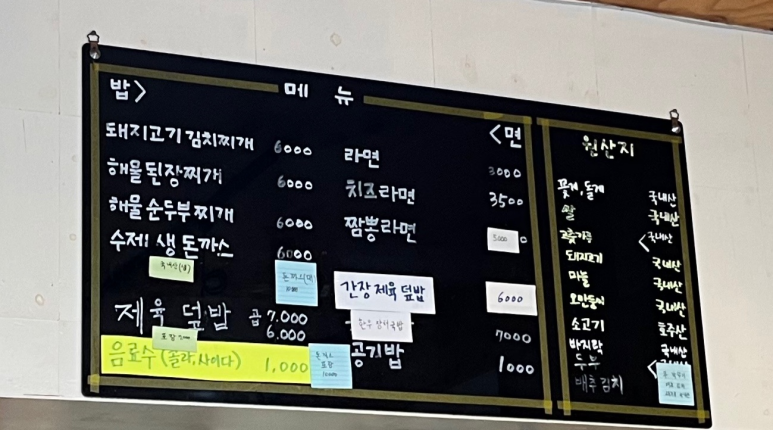 메 뉴
밥>
돼지고기 김치찌개 6000
해물 된장찌개 6000
해물 순두부찌개 6000
수제! 생 돈까스 6000
제육 덮밥 곱 7.000
6.000
음료수 (콜라, 사이다) 1.000
<면
라면 3000
치즈라면 3500
짬뽕라면
간장 제육 덮밥 6000
7000
공기밥 1000
원산지
꽃게, 돌게 국내산
쌀 국내산
고춧가루 국내산
돼지고기 국내산
마늘 국내산
오만둥이 국내산
소고기 호주산
바지락 국내산
두부
배추김치